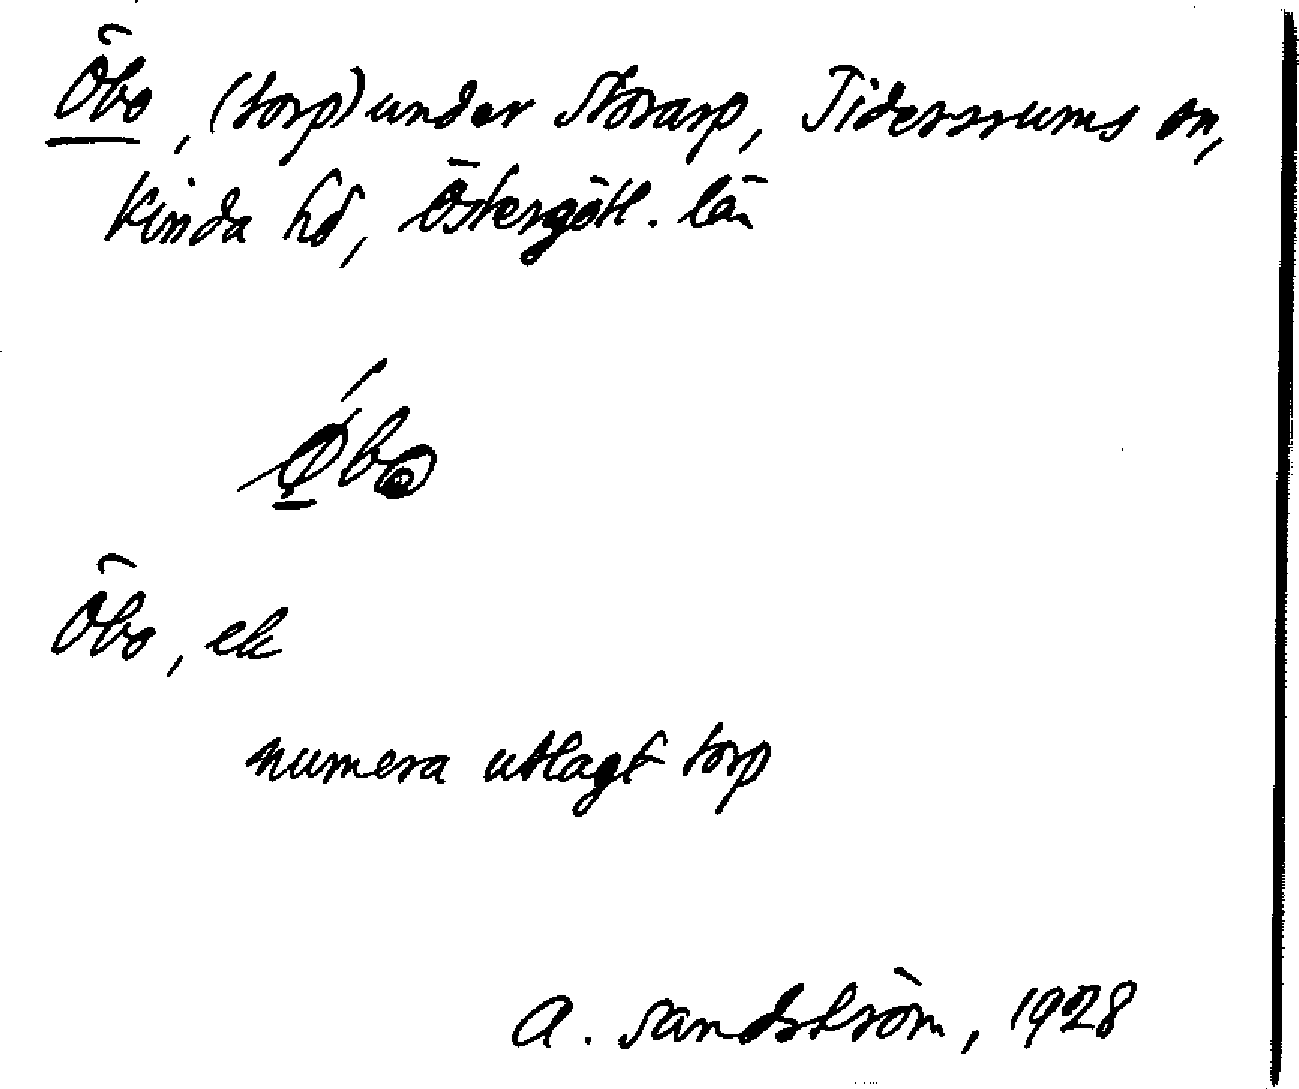 Öbo, (torp) under Norarp, Tidersrums sn,
Kinda hd, Östergötl. län
Öbo, ek
numera utlagt torp
A. Sandström, 1928